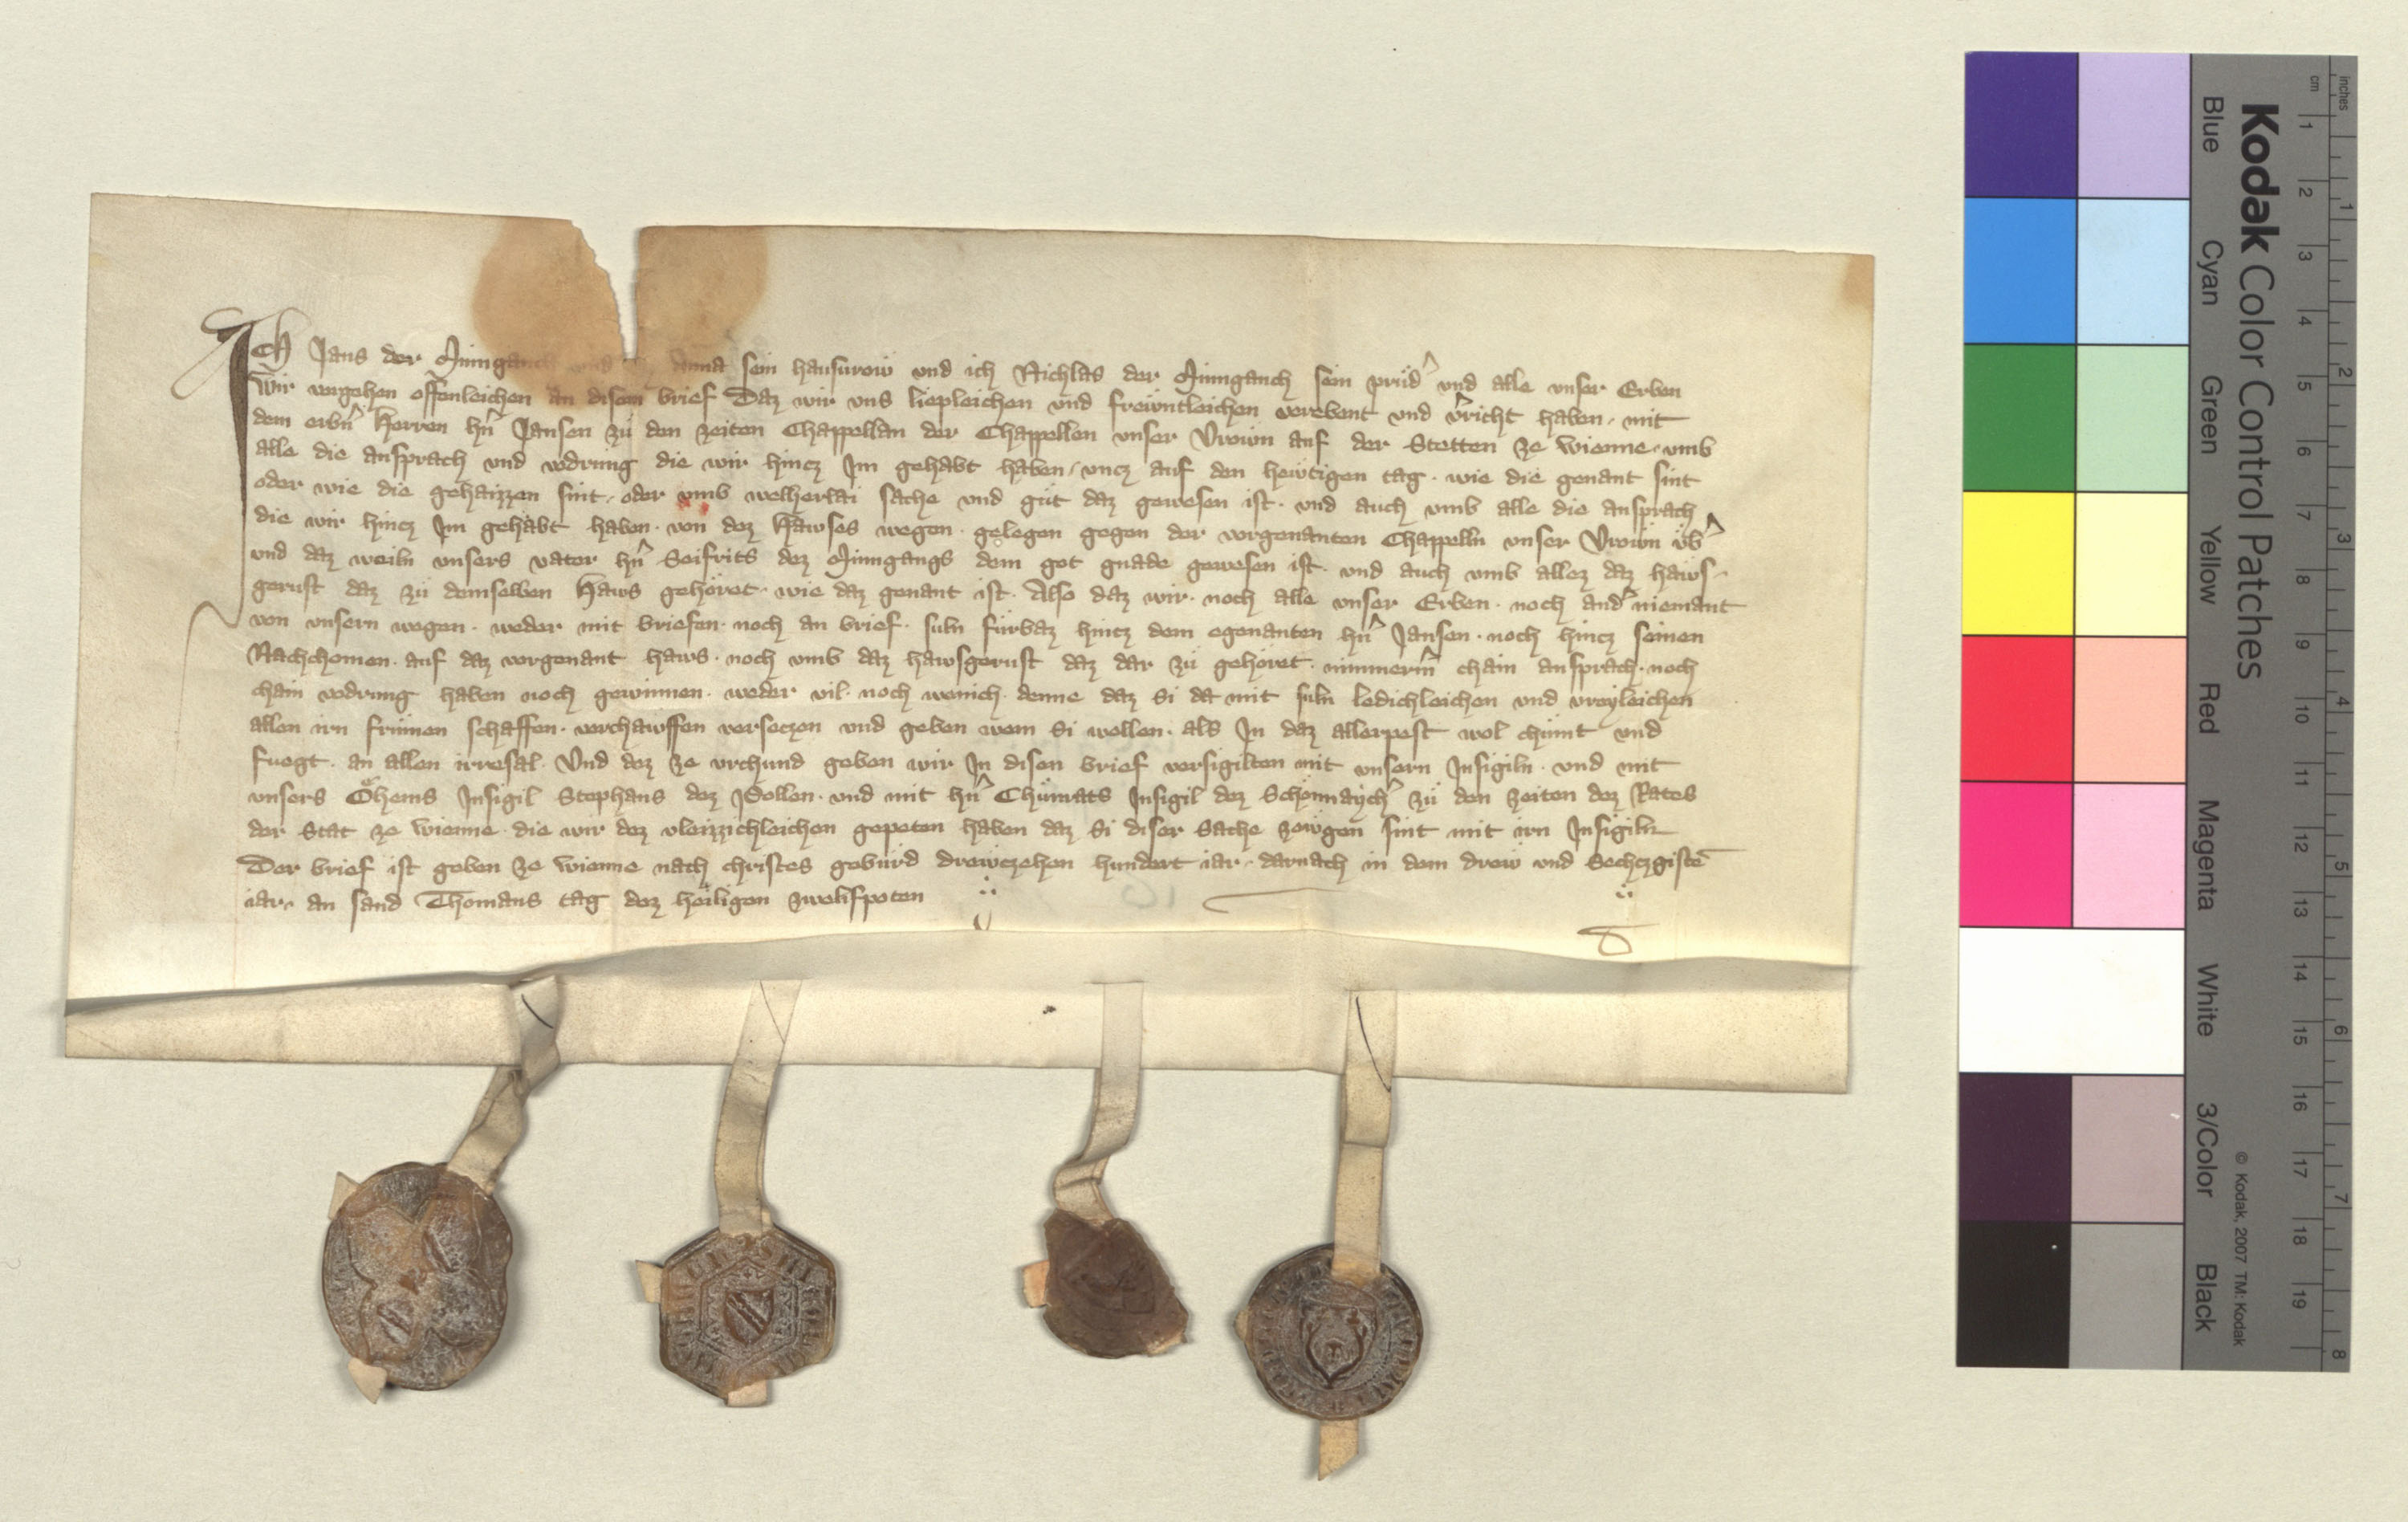 Ich Jans der Minnganch und ich Anna sein hausvrow und ich Nichlas der Minnganch sein průd' und alle unser Erben
Wir vergehen offenleichen an disem brief Daz wir uns liepleichen und frewntleichen verebent und v'richt haben mit
dem erbn̄ Herren hn̄ Jansen zů den zeiten Chappellan der Chappellen unser Vrown auf der Stetten ze Wienne umb
alle die ansprach und vodrung die wir hincz Im gehabt haben uncz auf den hewtigen tag wie die genant sint
oder wie die gehaizzen sint oder umb welherlai sache und gůt daz gewesen ist und auch umb alle die ansprach
die wir hincz Im gehabt haben von dez Hawses wegen gelegen gegen der vorgenanten Chappelln unser Vrown ůb'
und daz weiln unsers vater hn̄ Seifrits dez Minngangs dem got gnade gewesen ist und auch umb allez daz haws
gerust daz zů demselben Haws gehöret wie daz genant ist Also daz wir noch alle unser Erben noch and' niemant
von unsern wegen weder mit briefen noch an brief suln fürbaz hincz dem egenanten hn̄ Jansen noch hincz seinen
Nachchomen auf daz vorgenant haws noch umb daz hawsgerust daz dar zů gehöret nimmerm̄ chain ansprach noch
chain vodrung haben noch gewinnen weder vil noch wenich denne daz si da mit suln ledichleichen und vreyleichen
allen irn frümen schaffen verchawffen versetzen und geben wem si wellen als In daz allerpest wol chümt und
fuegt an allen irresal Und dez ze urchund geben wir In disen brief versigilten mit unsern Insigiln und mit
unsers Öhems Insigil Stephans dez Pollen und mit hn̄ Chůnrats Insigil dez Schönnaych' zů den zeiten dez Rates
der Stat ze Wienne die wir dez vleizzichleichen gepeten haben daz si diser sache zewgen sint mit irn Insigiln
Der brief ist geben ze Wienne nach christes gebürd drewczehen hundert iar darnach in dem drew und Sechczgistē
iar an sand Thomans tag dez heiligen zwelifpoten
Kodak Color Control Patches
Blue Cyan Green Yellow Red Magenta White 3/Color Black
© Kodak, 2007 TM: Kodak
cm 1 2 3 4 5 6 7 8 9 10 11 12 13 14 15 16 17 18 19
inches 1 2 3 4 5 6 7 8